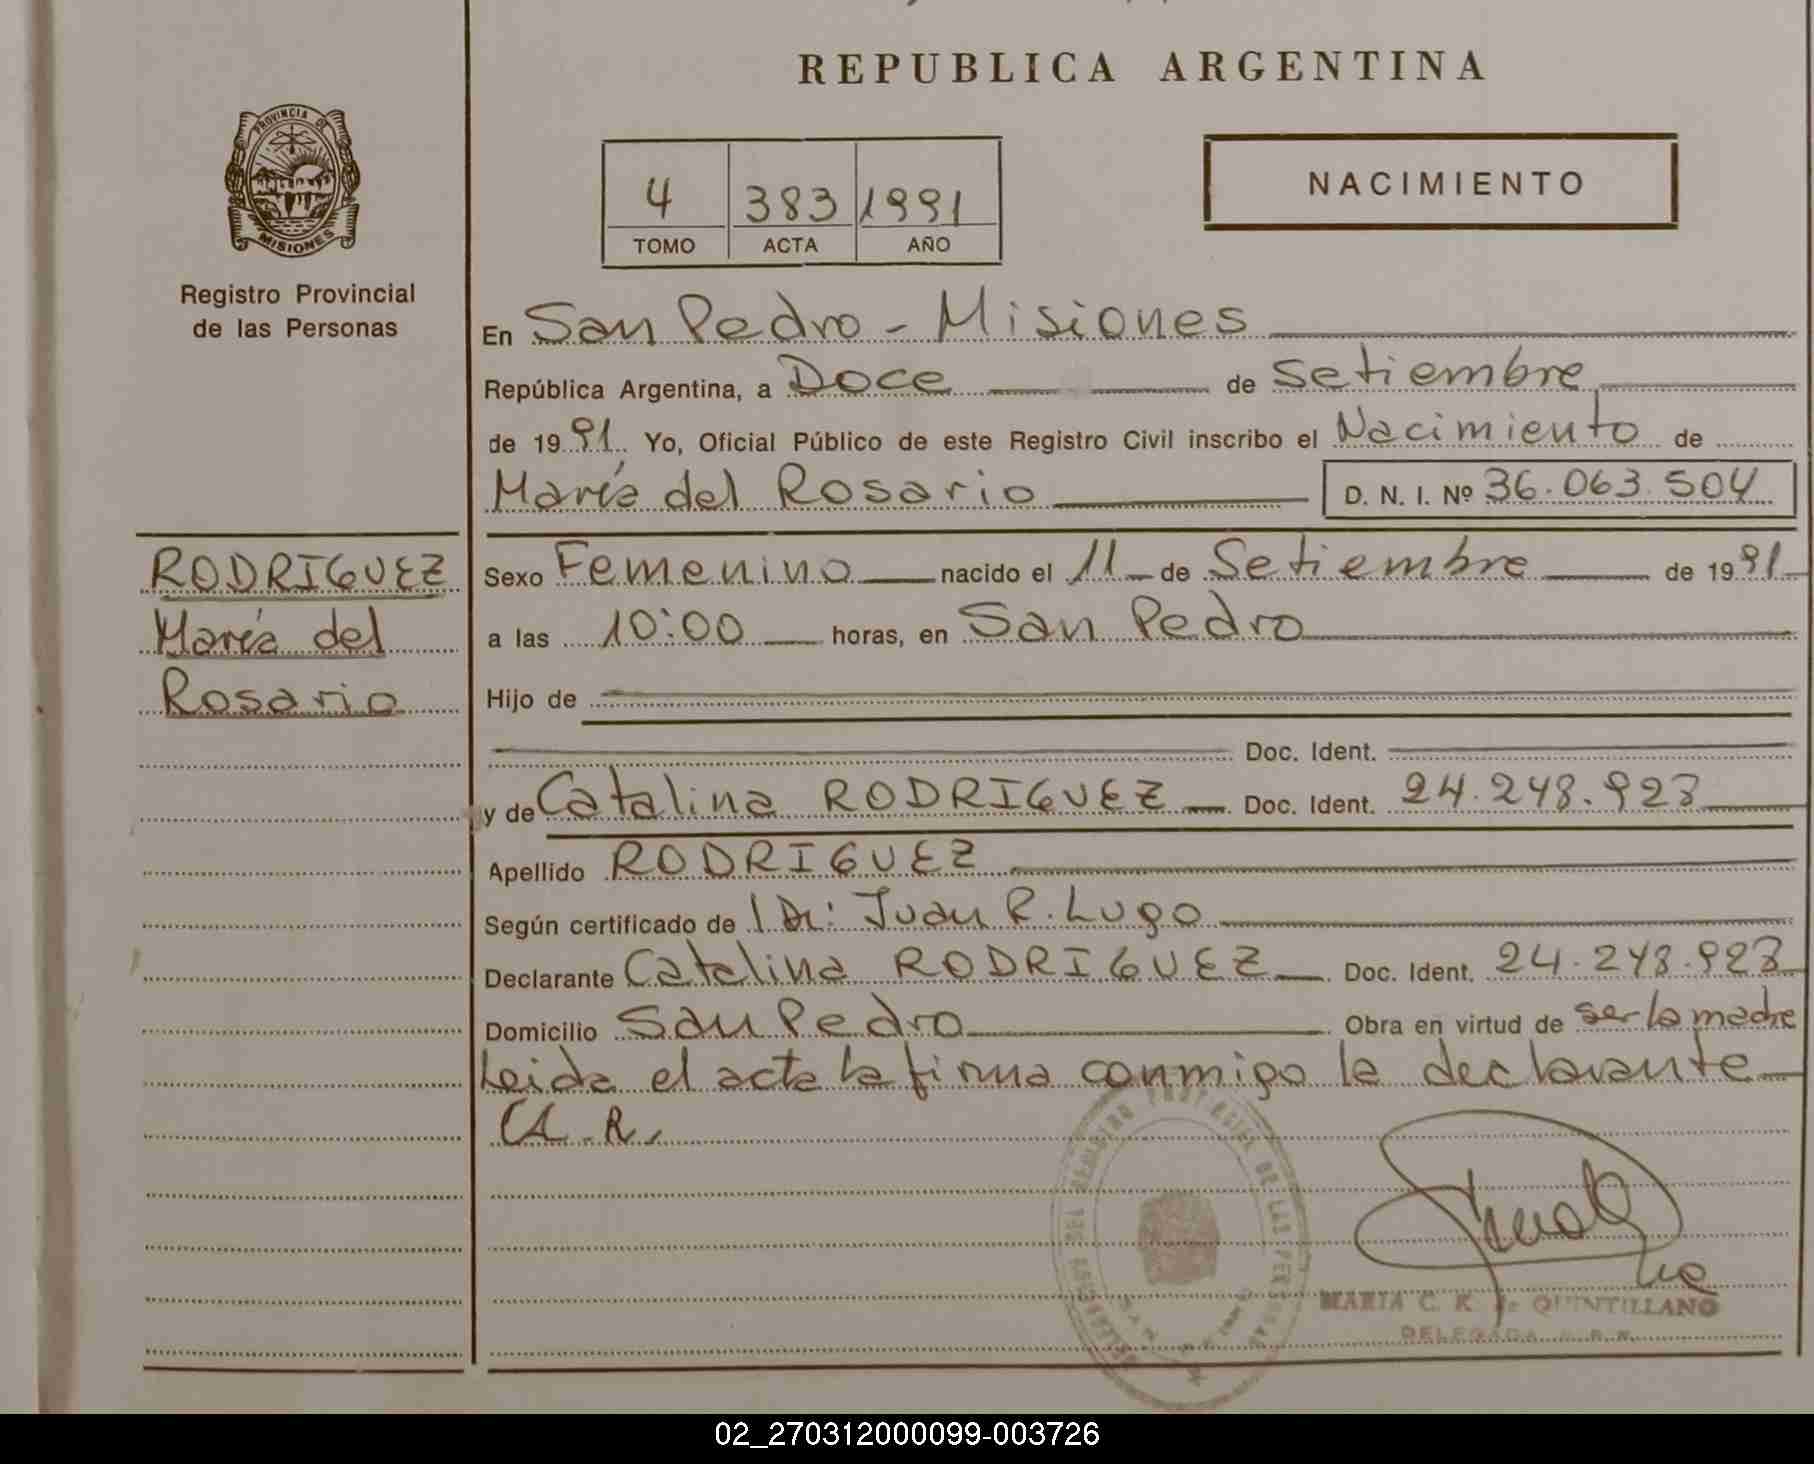 REPUBLICA ARGENTINA
PROVINCIA DE
MISIONES
Registro Provincial
de las Personas
4 383 1991
TOMO ACTA AÑO
NACIMIENTO
En San Pedro - Misiones
República Argentina, a Doce de Setiembre
de 1991. Yo, Oficial Público de este Registro Civil inscribo el Nacimiento de
María del Rosario D. N. I. Nº 36.063.504
RODRIGUEZ
María del
Rosario
Sexo Femenino nacido el 11 de Setiembre de 1991
a las 10:00 horas, en San Pedro
Hijo de
Doc. Ident.
y de Catalina RODRIGUEZ Doc. Ident. 24.248.923
Apellido RODRIGUEZ
Según certificado de Dr: Juan R. Lugo
Declarante Catalina RODRIGUEZ Doc. Ident. 24.248.923
Domicilio San Pedro Obra en virtud de ser la madre
Leida el acta la firma conmigo la declarante
C. R.
REGISTRO PROVINCIAL DE LAS PERSONAS
SAN PEDRO
MARIA C. K. de QUINTILLANO
DELEGADA
02_270312000099-003726